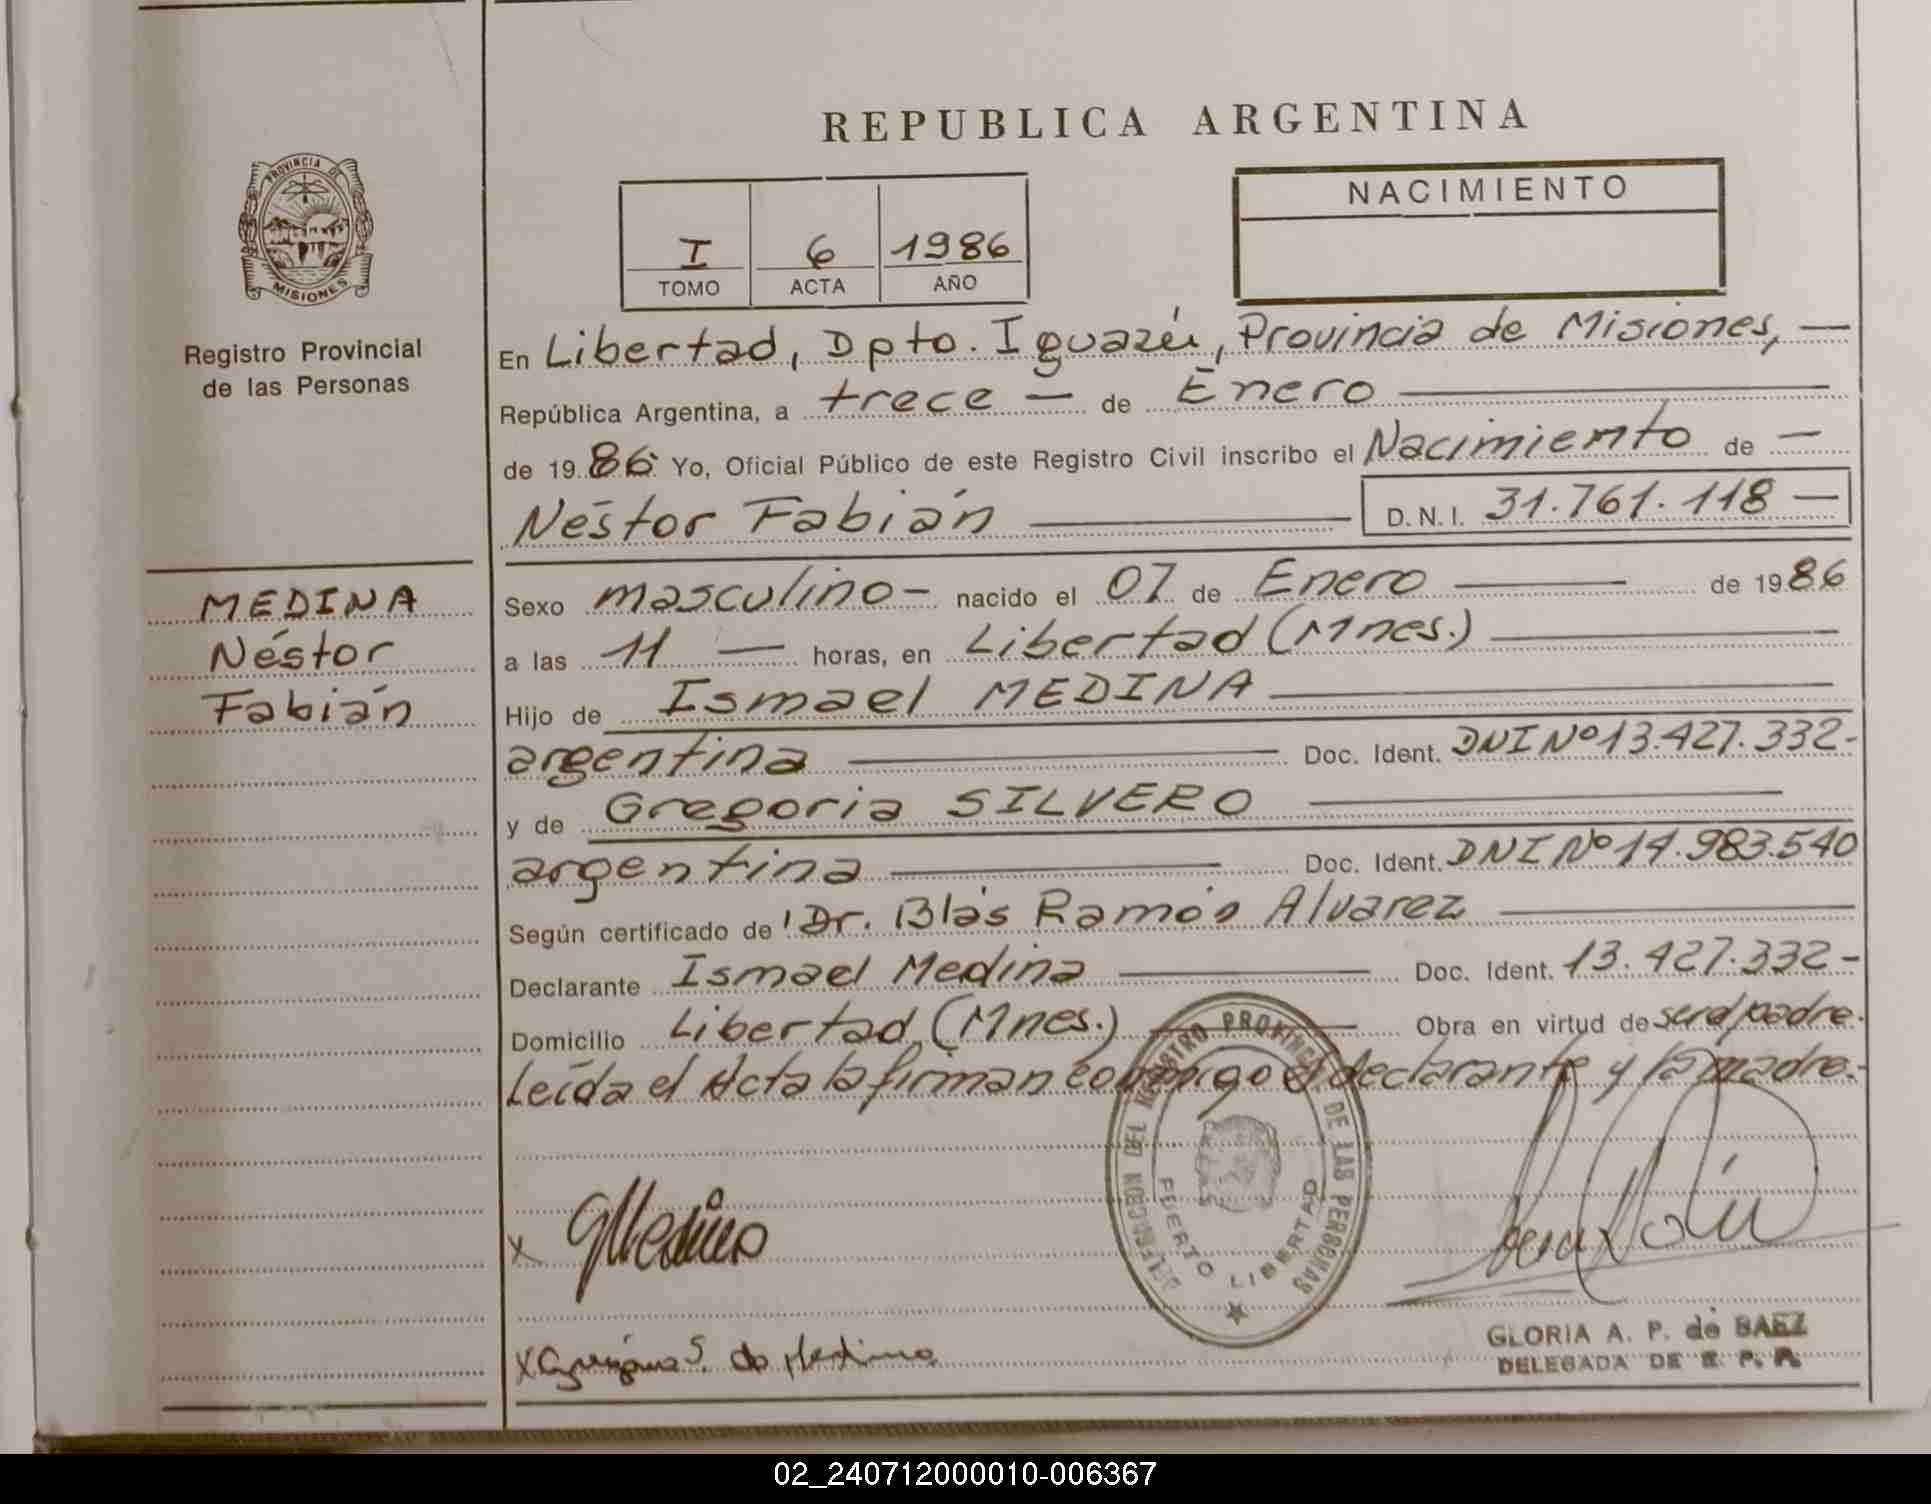 REPUBLICA ARGENTINA
PROVINCIA DE
MISIONES
Registro Provincial
de las Personas
NACIMIENTO
I 6 1986
TOMO ACTA AÑO
En Libertad, Dpto. Iguazú, Provincia de Misiones, —
República Argentina, a trece — de Enero —
de 1986 Yo, Oficial Público de este Registro Civil inscribo el Nacimiento de —
Néstor Fabián — D.N.I. 31.761.118 —
MEDINA
Néstor
Fabián
Sexo masculino - nacido el 07 de Enero — de 1986
a las 11 — horas, en Libertad (Mnes.) —
Hijo de Ismael MEDINA —
argentina — Doc. Ident. DNI Nº 13.427.332-
y de Gregoria SILVERO —
argentina — Doc. Ident. DNI Nº 14.983.540
Según certificado de Dr. Blás Ramón Alvarez —
Declarante Ismael Medina — Doc. Ident. 13.427.332-
Domicilio Libertad (Mnes.) — Obra en virtud de ser el padre.
Leída el Acta la firman conmigo el declarante y la madre.-
DELEGACION DEL REGISTRO PROVINCIAL DE LAS PERSONAS
PUERTO LIBERTAD
x Medina
x S. de Medina
GLORIA A. P. de BAEZ
DELEGADA DE R. P. P.
02_240712000010-006367